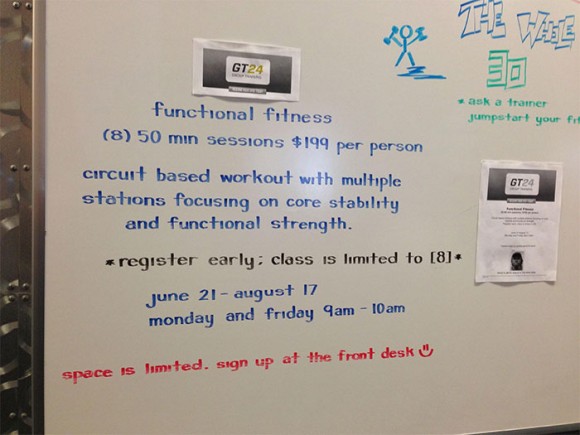 THE WHOLE
30
* ask a trainer
jumpstart your fit
GT24
functional fitness
(8) 50 min sessions $199 per person
circuit based workout with multiple
stations focusing on core stability
and functional strength.
*register early; class is limited to [8]*
june 21 - august 17
monday and friday 9am - 10am
space is limited. sign up at the front desk
GT24
Functional Fitness